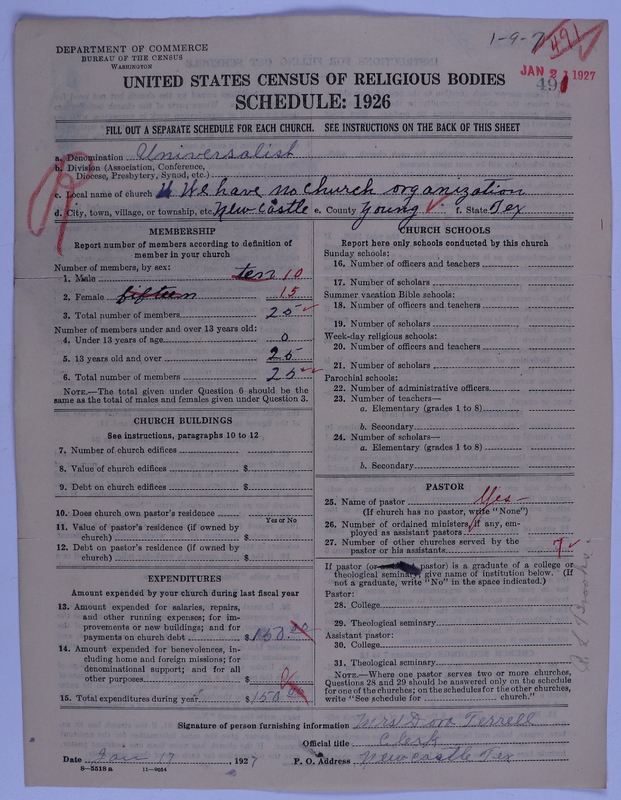 DEPARTMENT OF COMMERCE
BUREAU OF THE CENSUS
WASHINGTON
1-9-7
491
JAN 2 1927
491
UNITED STATES CENSUS OF RELIGIOUS BODIES
SCHEDULE: 1926
FILL OUT A SEPARATE SCHEDULE FOR EACH CHURCH. SEE INSTRUCTIONS ON THE BACK OF THIS SHEET
a. Denomination Universalist
b. Division (Association, Conference,
Diocese, Presbytery, Synod, etc.)
c. Local name of church We have no church organization
d. City, town, village, or township, etc. New Castle e. County Young f. State Tex
MEMBERSHIP
Report number of members according to definition of
member in your church
Number of members, by sex:
1. Male ten 10
2. Female fifteen 15
3. Total number of members 25
Number of members under and over 13 years old:
4. Under 13 years of age 0
5. 13 years old and over 25
6. Total number of members 25
NOTE.—The total given under Question 6 should be the
same as the total of males and females given under Question 3.
CHURCH BUILDINGS
See instructions, paragraphs 10 to 12
7. Number of church edifices
8. Value of church edifices $
9. Debt on church edifices $
10. Does church own pastor's residence
Yes or No
11. Value of pastor's residence (if owned by
church) $
12. Debt on pastor's residence (if owned by
church) $
EXPENDITURES
Amount expended by your church during last fiscal year
13. Amount expended for salaries, repairs,
and other running expenses; for im-
provements or new buildings; and for
payments on church debt $ 150 00
14. Amount expended for benevolences, in-
cluding home and foreign missions; for
denominational support; and for all
other purposes $ 0
15. Total expenditures during year $ 150 00
CHURCH SCHOOLS
Report here only schools conducted by this church
Sunday schools:
16. Number of officers and teachers
17. Number of scholars
Summer vacation Bible schools:
18. Number of officers and teachers
19. Number of scholars
Week-day religious schools:
20. Number of officers and teachers
21. Number of scholars
Parochial schools:
22. Number of administrative officers
23. Number of teachers—
a. Elementary (grades 1 to 8)
b. Secondary
24. Number of scholars—
a. Elementary (grades 1 to 8)
b. Secondary
PASTOR
25. Name of pastor Yes
(If church has no pastor, write "None")
26. Number of ordained ministers, if any, em-
ployed as assistant pastors
27. Number of other churches served by the
pastor or his assistants 7
If pastor (or pastor) is a graduate of a college or
theological seminary, give name of institution below. (If
not a graduate, write "No" in the space indicated.)
Pastor:
28. College
29. Theological seminary
Assistant pastor:
30. College
31. Theological seminary
NOTE.—Where one pastor serves two or more churches,
Questions 28 and 29 should be answered only on the schedule
for one of the churches; on the schedules for the other churches,
write "See schedule for church."
Signature of person furnishing information Mrs Dora Terrell
Official title Clerk
Date Jan 17, 1927 P. O. Address Newcastle Tex
8-5518 a 11-9654